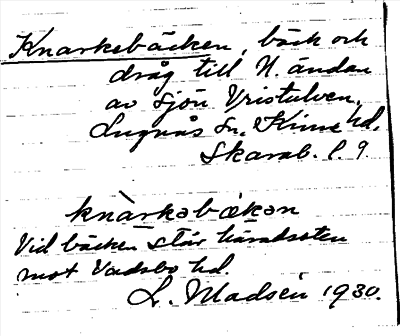 Knarkebäcken, bäck och
dråg till N. ändan
av sjön Vristulven,
Lugnås sn. Kinne hd.
Skarab. l. 9.
knàrkəbækən
Vid bäcken står häradssten
mot Vadsbo hd.
L. Madsén 1930.